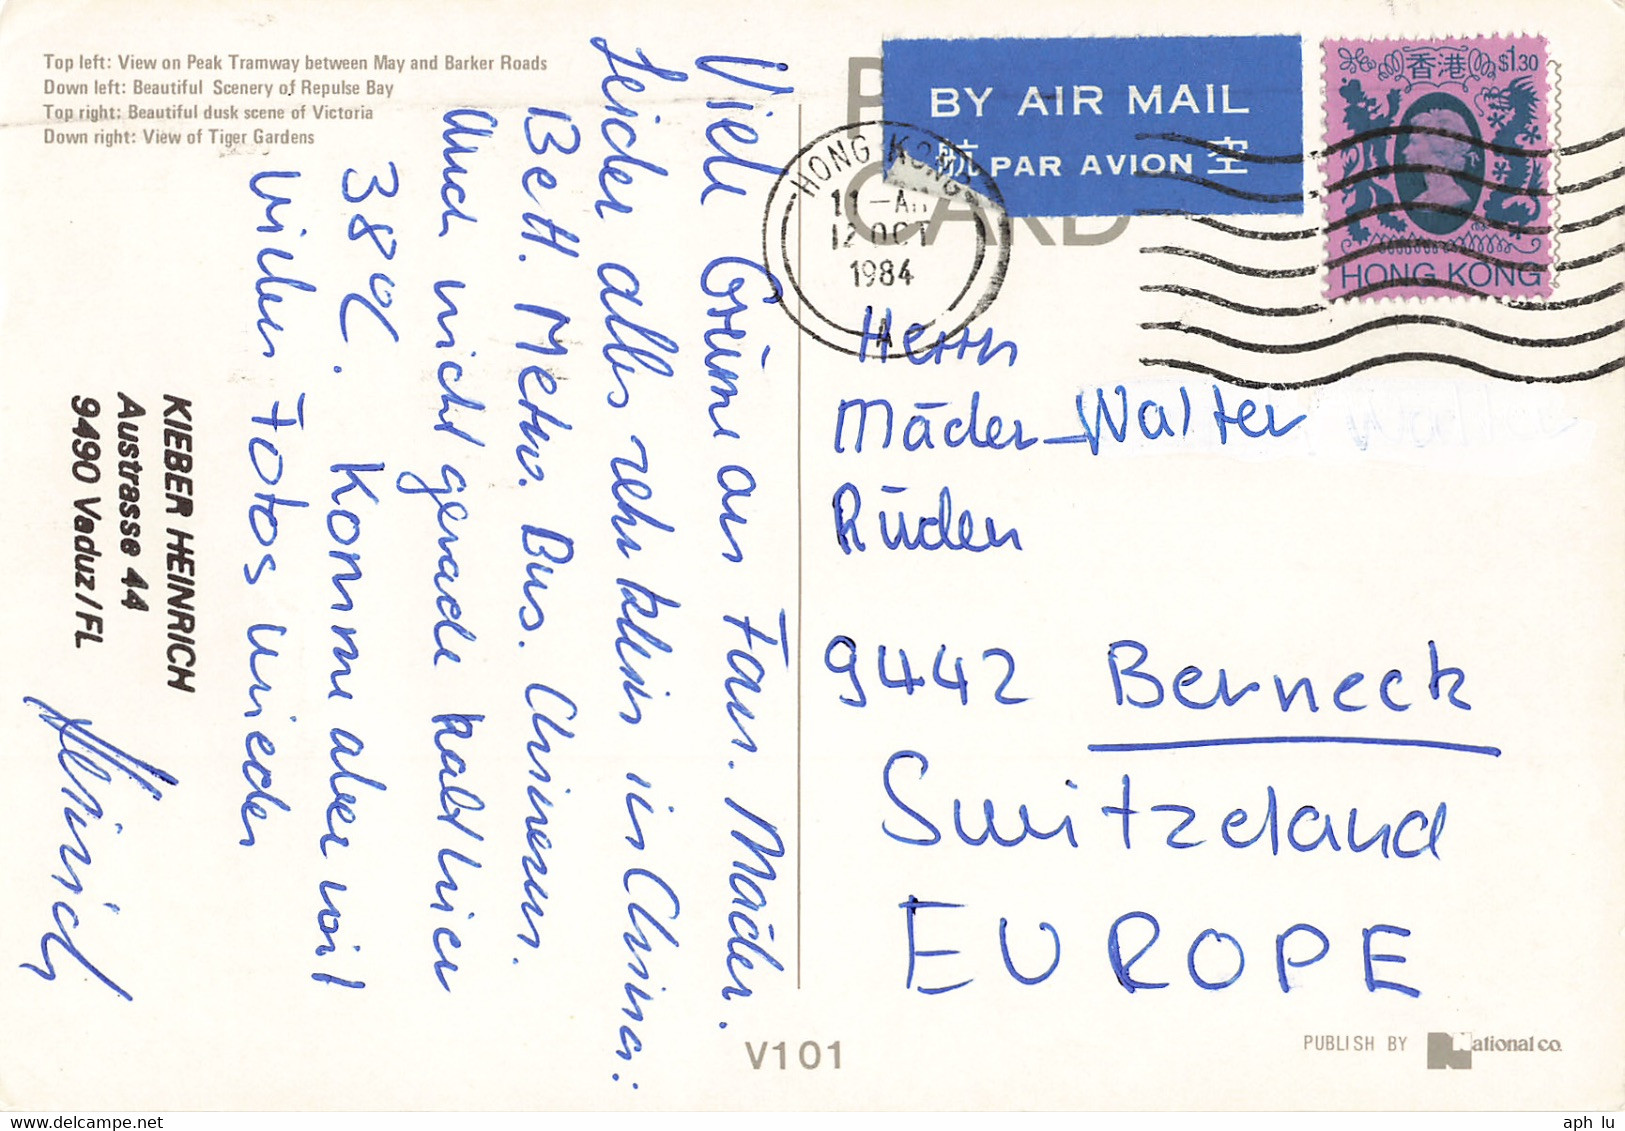 Top left: View on Peak Tramway between May and Barker Roads
Down left: Beautiful Scenery of Repulse Bay
Top right: Beautiful dusk scene of Victoria
Down right: View of Tiger Gardens
BY AIR MAIL
航 PAR AVION 空
CARD
香港 $1.30
HONG KONG
HONG KONG
11-AM
12 OCT
1984
A
Viele Grüsse an Fam. Mäder.
Leider alles sehr klein in China:
Bett. Metro. Bus. Chinesen.
Auch nicht gerade kalt hier
38°C. Komme aber mit
vielen Fotos wieder
Heinrich
KIEBER HEINRICH
Austrasse 44
9490 Vaduz/FL
Herrn
Mäder Walter
Rüden
9442 Berneck
Switzeland
EUROPE
V101
PUBLISH BY National co.
aph lu
www.delcampe.net